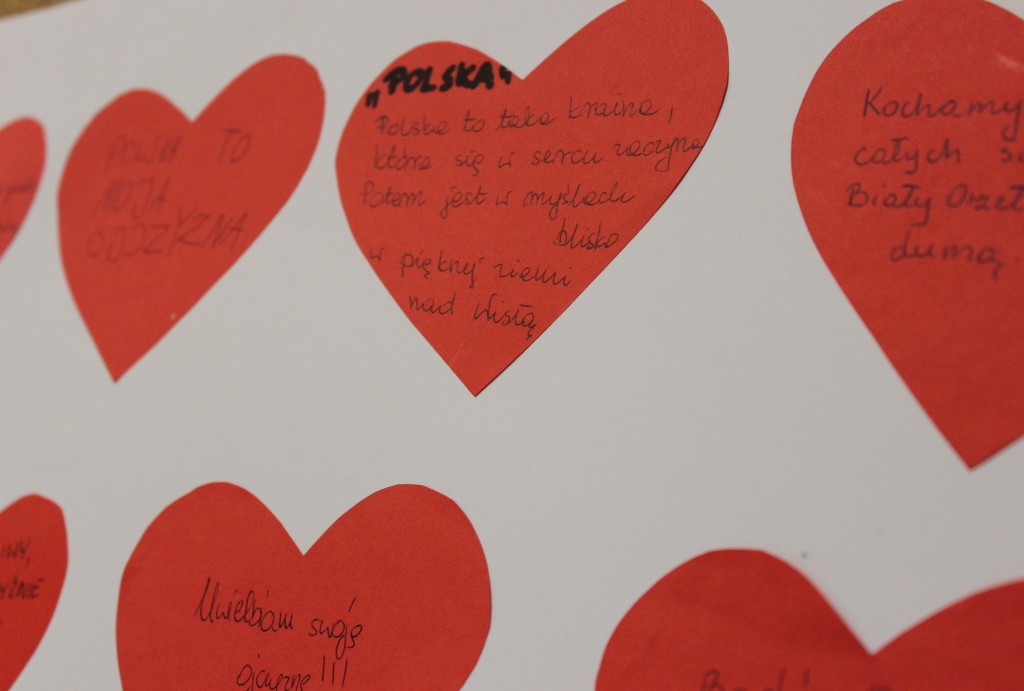 POLSKA TO
MOJA
OJCZYZNA
„POLSKA"
Polska to taka kraina,
która się w sercu zaczyna
Potem jest w myślach
blisko
w pięknej ziemi
nad Wisłą
Kochamy
całych
Biały Orzeł
dumą.
Uwielbiam swoją
ojczyznę!!!